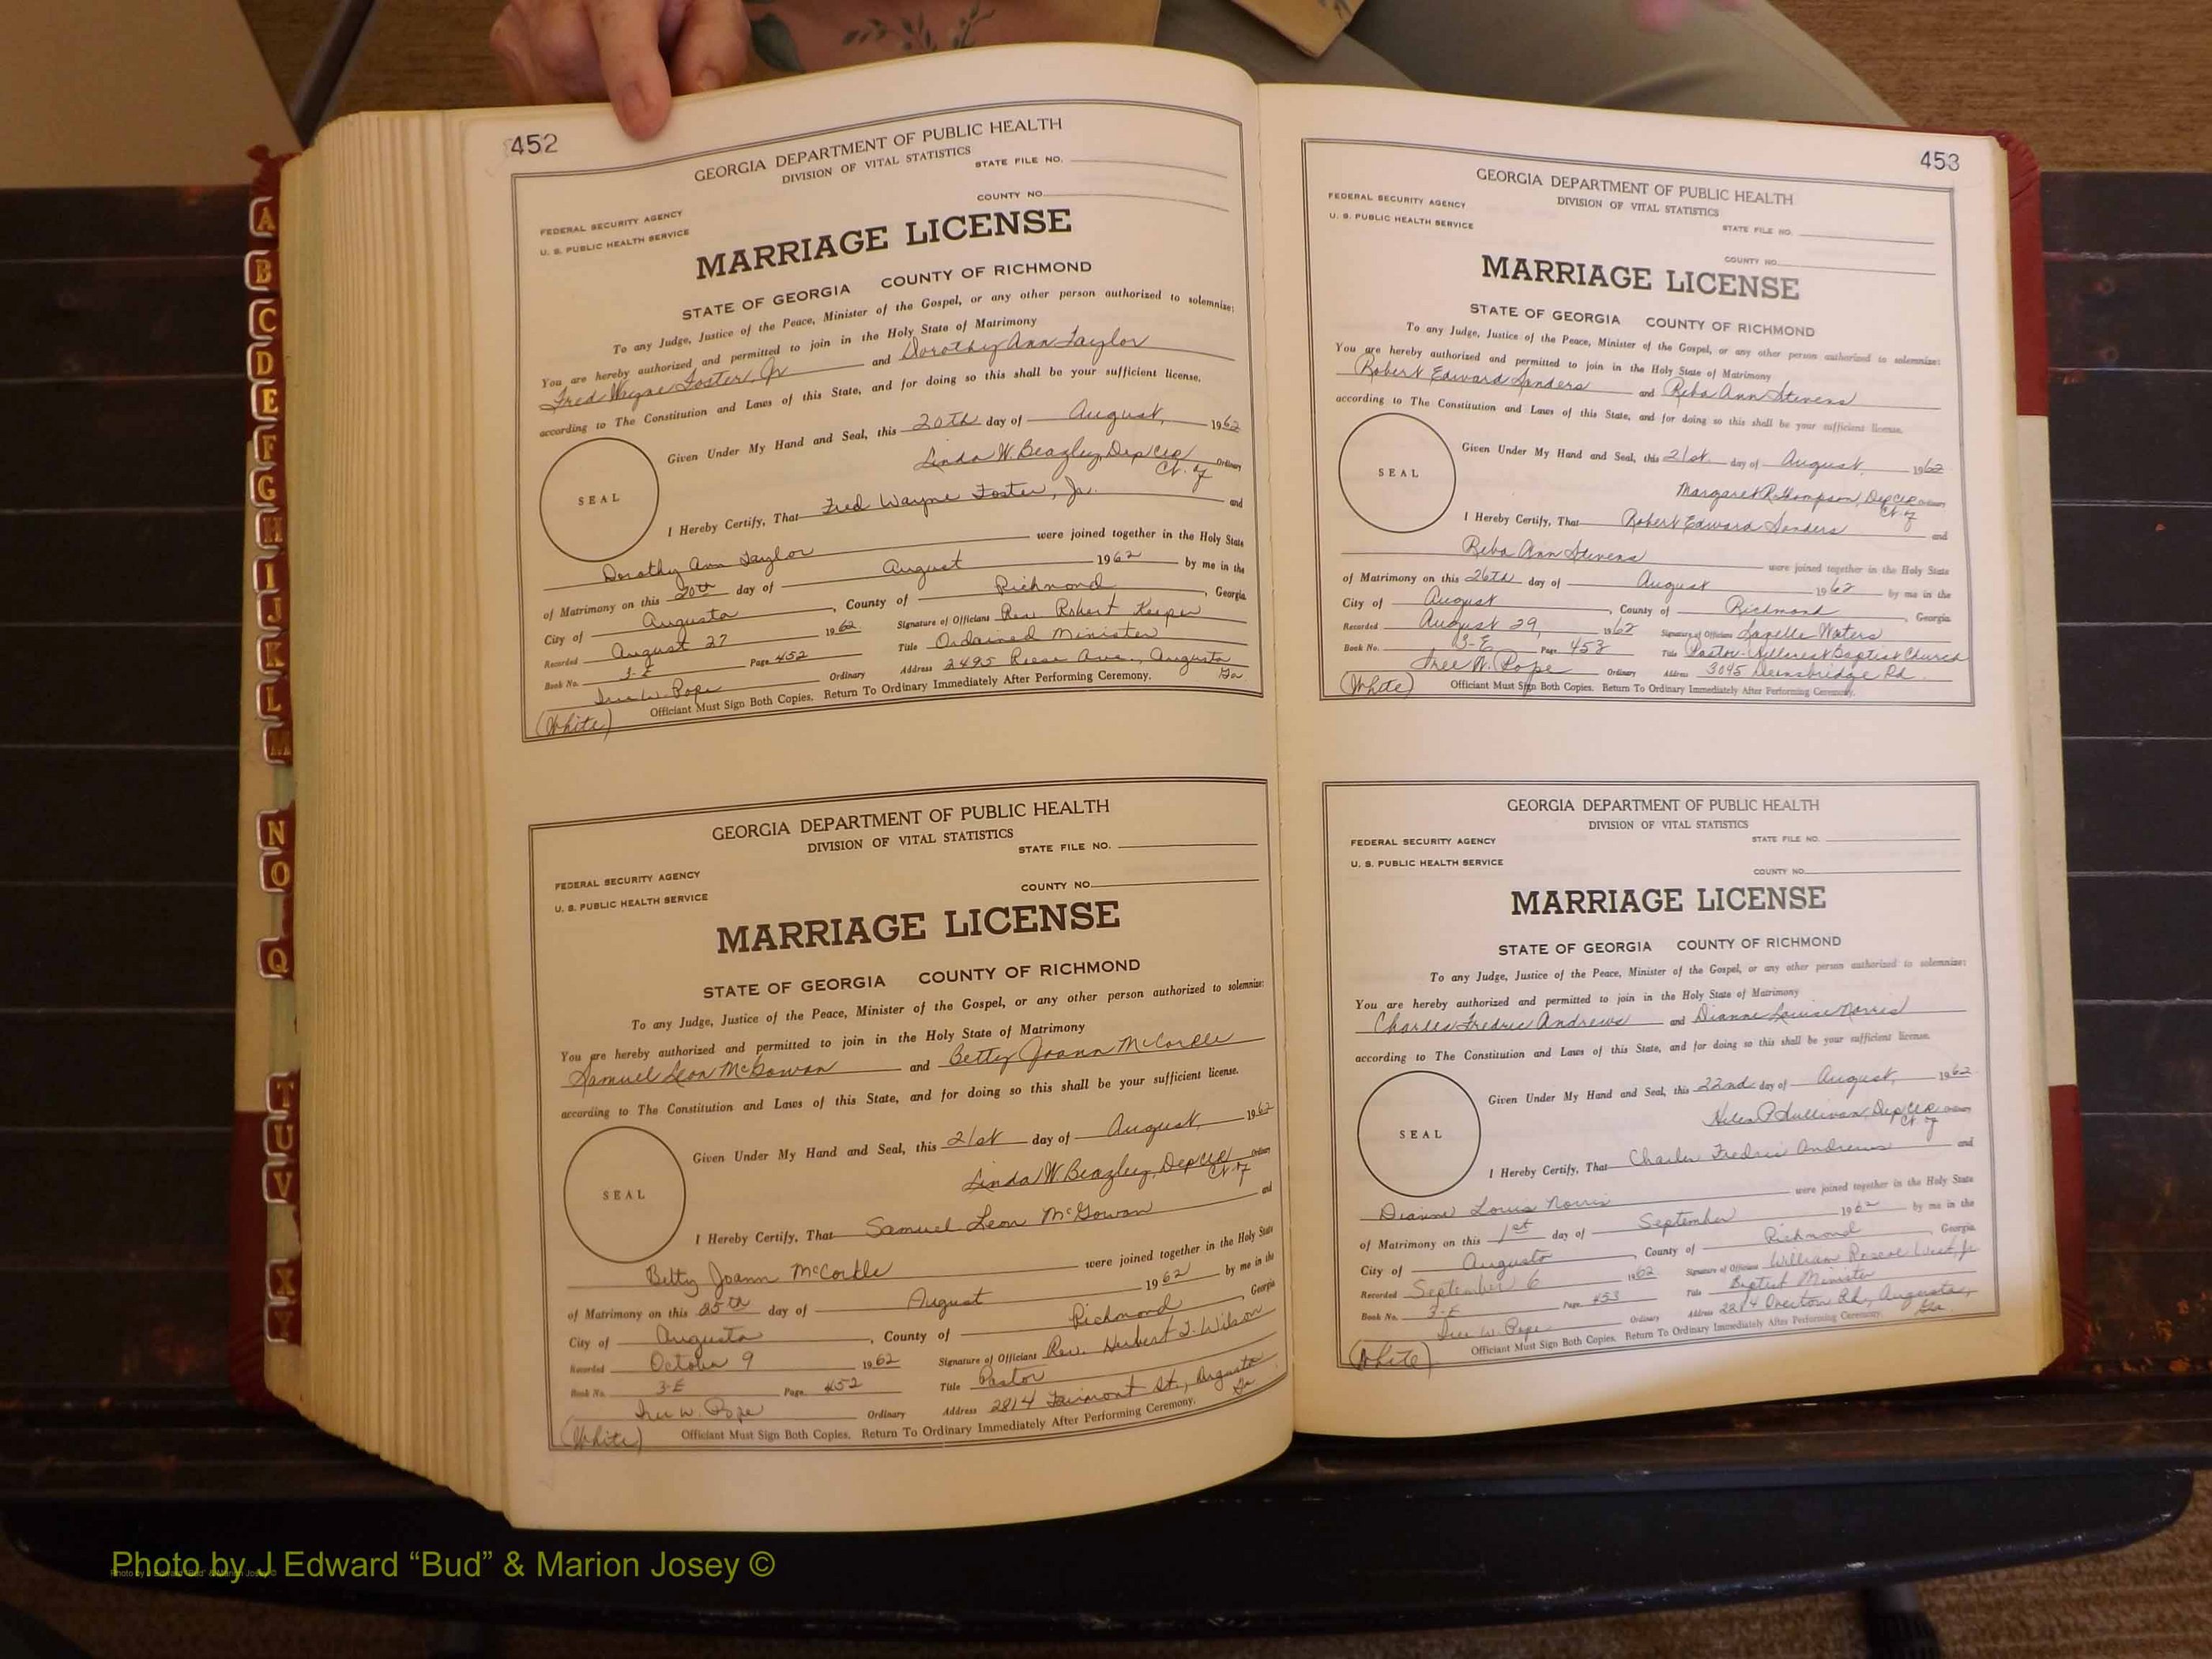 452
GEORGIA DEPARTMENT OF PUBLIC HEALTH
DIVISION OF VITAL STATISTICS
STATE FILE NO.
COUNTY NO.
FEDERAL SECURITY AGENCY
U. S. PUBLIC HEALTH SERVICE
MARRIAGE LICENSE
STATE OF GEORGIA COUNTY OF RICHMOND
To any Judge, Justice of the Peace, Minister of the Gospel, or any other person authorized to solemnize:
You are hereby authorized and permitted to join in the Holy State of Matrimony
Fred Wayne Foster, Jr and Dorothy Ann Taylor
according to The Constitution and Laws of this State, and for doing so this shall be your sufficient license.
Given Under My Hand and Seal, this 20th day of August, 1962
Linda W. Beazley, Dep Clk Ordinary
Ct. of
SEAL
I Hereby Certify, That Fred Wayne Foster, Jr. and
Dorothy Ann Taylor were joined together in the Holy State
of Matrimony on this 20th day of August 1962 by me in the
City of Augusta, County of Richmond, Georgia
Recorded August 27 1962 Signature of Officiant Rev. Robert Keeper
Book No. 3-E Page 452 Title Ordained Minister
Ordinary Address 2495 Reese Ave., Augusta
Ga
(White) Officiant Must Sign Both Copies. Return To Ordinary Immediately After Performing Ceremony.
GEORGIA DEPARTMENT OF PUBLIC HEALTH
DIVISION OF VITAL STATISTICS
STATE FILE NO.
COUNTY NO.
FEDERAL SECURITY AGENCY
U. S. PUBLIC HEALTH SERVICE
MARRIAGE LICENSE
STATE OF GEORGIA COUNTY OF RICHMOND
To any Judge, Justice of the Peace, Minister of the Gospel, or any other person authorized to solemnize:
You are hereby authorized and permitted to join in the Holy State of Matrimony
Samuel Leon McGowan and Betty Joann McCorkle
according to The Constitution and Laws of this State, and for doing so this shall be your sufficient license.
Given Under My Hand and Seal, this 21st day of August, 1962
Linda W. Beazley, Dep Clk Ordinary
Ct. of
SEAL
I Hereby Certify, That Samuel Leon McGowan and
Betty Joann McCorkle were joined together in the Holy State
of Matrimony on this 25th day of August 1962 by me in the
City of Augusta, County of Richmond Georgia
Recorded October 9 1962 Signature of Officiant Rev. Hubert J. Wilson
Book No. 3-E Page 452 Title Pastor
W. Pope Ordinary Address 2814 Fairmont St., Augusta
Ga
(White) Officiant Must Sign Both Copies. Return To Ordinary Immediately After Performing Ceremony.
453
GEORGIA DEPARTMENT OF PUBLIC HEALTH
DIVISION OF VITAL STATISTICS
STATE FILE NO.
COUNTY NO.
FEDERAL SECURITY AGENCY
U. S. PUBLIC HEALTH SERVICE
MARRIAGE LICENSE
STATE OF GEORGIA COUNTY OF RICHMOND
To any Judge, Justice of the Peace, Minister of the Gospel, or any other person authorized to solemnize:
You are hereby authorized and permitted to join in the Holy State of Matrimony
Robert Edward Sanders and Reba Ann Stevens
according to The Constitution and Laws of this State, and for doing so this shall be your sufficient license.
Given Under My Hand and Seal, this 21st day of August, 1962
Margaret R. Thompson, Dep Clk Ordinary
Ct. of
SEAL
I Hereby Certify, That Robert Edward Sanders and
Reba Ann Stevens were joined together in the Holy State
of Matrimony on this 26th day of August 1962 by me in the
City of August, County of Richmond, Georgia
Recorded August 29, 1962 Signature of Officiant Lavelle Waters
Book No. 3-E Page 453 Title Pastor-Hillcrest Baptist Church
W. Pope Ordinary Address 3045 Deansbridge Rd.
(White) Officiant Must Sign Both Copies. Return To Ordinary Immediately After Performing Ceremony.
GEORGIA DEPARTMENT OF PUBLIC HEALTH
DIVISION OF VITAL STATISTICS
STATE FILE NO.
COUNTY NO.
FEDERAL SECURITY AGENCY
U. S. PUBLIC HEALTH SERVICE
MARRIAGE LICENSE
STATE OF GEORGIA COUNTY OF RICHMOND
To any Judge, Justice of the Peace, Minister of the Gospel, or any other person authorized to solemnize:
You are hereby authorized and permitted to join in the Holy State of Matrimony
Charles Fredric Andrews and Dianne Louise Norris
according to The Constitution and Laws of this State, and for doing so this shall be your sufficient license.
Given Under My Hand and Seal, this 22nd day of August, 1962
Helen P. Sullivan, Dep Clk Ordinary
Ct. of
SEAL
I Hereby Certify, That Charles Fredric Andrews and
Dianne Louis Norris were joined together in the Holy State
of Matrimony on this 1st day of September 1962 by me in the
City of Augusta, County of Richmond, Georgia
Recorded September 6 1962 Signature of Officiant William Roscoe West, Jr
Book No. 3-E Page 453 Title Baptist Minister
W. Pope Ordinary Address 2214 Overton Rd., Augusta,
Ga.
(White) Officiant Must Sign Both Copies. Return To Ordinary Immediately After Performing Ceremony.
A
B
C
D
E
F
G
H
I
J
K
L
M
N
O
Q
T
U
V
X
Y
Photo by J Edward “Bud” & Marion Josey ©
Photo by J Edward “Bud” & Marion Josey ©